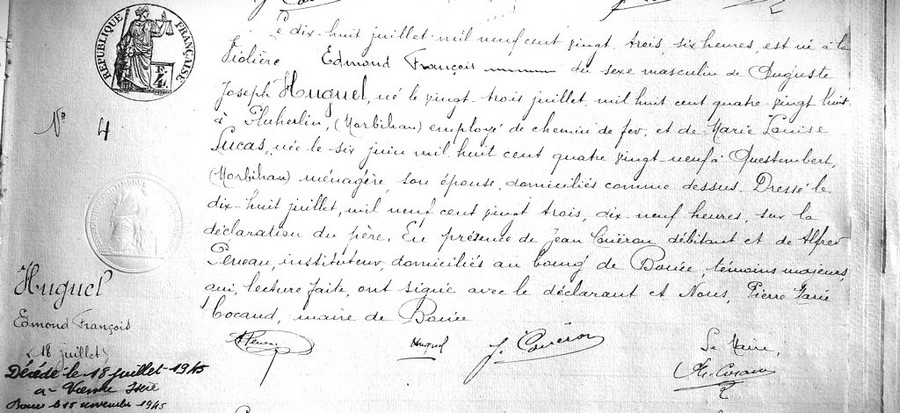 RÉPUBLIQUE FRANÇAISE
Le dix-huit juillet mil neuf cent vingt trois, six heures, est né à la
Violière Edmond François du sexe masculin de Auguste
Joseph Huguel, né le vingt-trois juillet, mil huit cent quatre-vingt huit
à Pluherlin, (Morbihan) employé de chemin de fer, et de Marie Louise
Lucas, née le six juin mil huit cent quatre vingt neuf à Questembert,
(Morbihan) ménagère, son épouse, domiciliés comme dessus. Dressé le
dix-huit juillet, mil neuf cent vingt trois, dix-neuf heures, sur la
déclaration du père. En présence de Jean Guéron débitant et de Alfred
instituteur, domiciliés au bourg de Bouée, témoins majeurs,
qui, lecture faite, ont signé avec le déclarant et Nous, Pierre Marie
Cocaud, maire de Bouée
Huguel
J. Guéron
Le Maire,
No 4
Huguel
Edmond François
(18 juillet)
Décédé le 18 juillet 1945
à Vienne Isère
Bouée le 15 novembre 1945